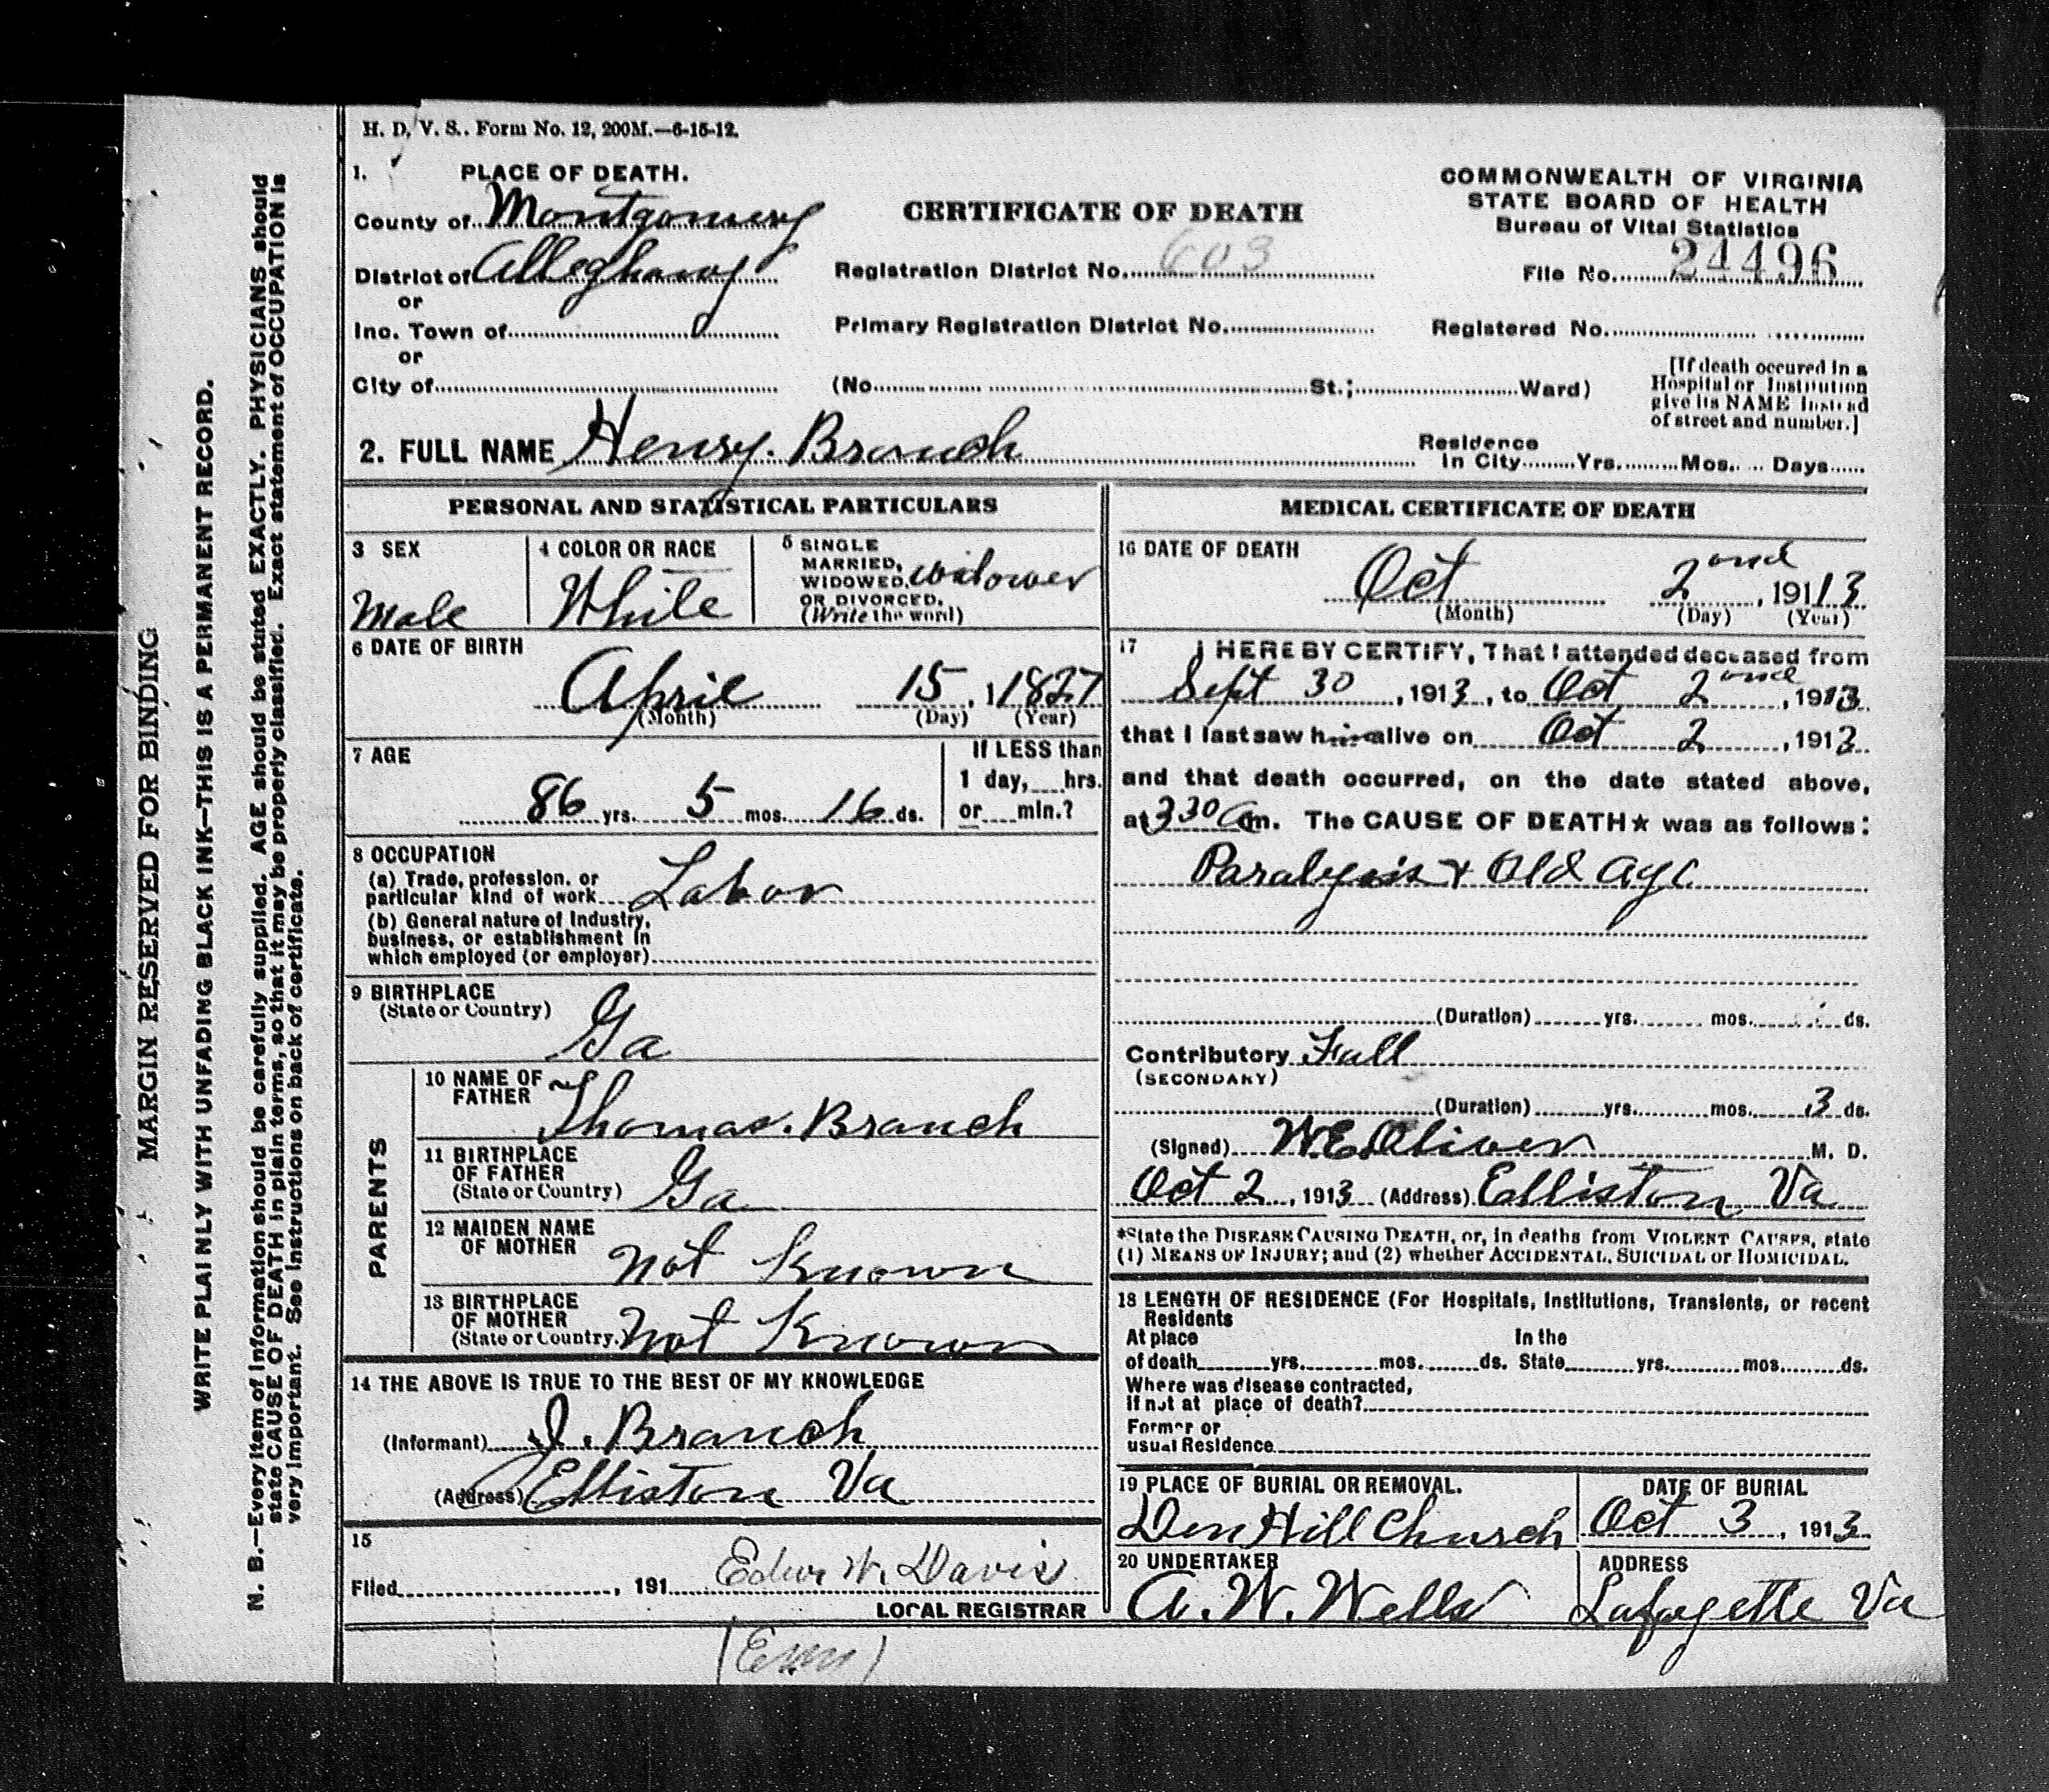 H. D. V. S.. Form No. 12, 200M.—6-15-12.
1. PLACE OF DEATH.
County of Montgomery
District of Alleghany
or
Inc. Town of
or
City of
CERTIFICATE OF DEATH
Registration District No. 603
Primary Registration District No.
(No. St.; Ward)
COMMONWEALTH OF VIRGINIA
STATE BOARD OF HEALTH
Bureau of Vital Statistics
File No. 24496
Registered No.
[If death occured in a
Hospital or Institution
give its NAME Instead
of street and number.]
2. FULL NAME Henry. Branch
Residence
In City Yrs. Mos. Days
PERSONAL AND STATISTICAL PARTICULARS
3 SEX
Male
4 COLOR OR RACE
White
5 SINGLE
MARRIED,
WIDOWED, widower
OR DIVORCED.
(Write the word)
6 DATE OF BIRTH
April 15, 11827
(Month) (Day) (Year)
7 AGE
86 yrs. 5 mos. 16 ds.
If LESS than
1 day, hrs.
or min.?
8 OCCUPATION
(a) Trade, profession, or
particular kind of work Labor
(b) General nature of Industry,
business, or establishment in
which employed (or employer)
9 BIRTHPLACE
(State or Country)
Ga
PARENTS
10 NAME OF
FATHER
Thomas. Branch
11 BIRTHPLACE
OF FATHER
(State or Country) Ga
12 MAIDEN NAME
OF MOTHER
not Known
13 BIRTHPLACE
OF MOTHER
(State or Country. not Known
14 THE ABOVE IS TRUE TO THE BEST OF MY KNOWLEDGE
(Informant) J. Branch
(Address) Elliston Va
15
Filed , 191 Edw W. Davis
LOCAL REGISTRAR
MEDICAL CERTIFICATE OF DEATH
16 DATE OF DEATH
Oct 2ond, 19113
(Month) (Day) (Year)
17 I HEREBY CERTIFY, That I attended deceased from
Sept 30, 1913, to Oct 2ond, 1913
that I last saw him alive on Oct 2, 1913
and that death occurred, on the date stated above,
at 330 am. The CAUSE OF DEATH★ was as follows:
Paralysis & Old age
(Duration) yrs. mos. ds.
Contributory Fall
(SECONDARY)
(Duration) yrs. mos. 3 ds.
(Signed) W.E. Oliver M. D.
Oct 2, 1913 (Address) Elliston Va
*State the DISEASE CAUSING DEATH, or, in deaths from VIOLENT CAUSES, state
(1) MEANS OF INJURY; and (2) whether ACCIDENTAL, SUICIDAL or HOMICIDAL.
18 LENGTH OF RESIDENCE (For Hospitals, Institutions, Transients, or recent
Residents
At place In the
of death yrs. mos. ds. State yrs. mos. ds.
Where was disease contracted,
if not at place of death?
Former or
usual Residence
19 PLACE OF BURIAL OR REMOVAL.
Den Hill Church
DATE OF BURIAL
Oct 3, 1913
20 UNDERTAKER
A. W. Wells
ADDRESS
Lafayette Va
MARGIN RESERVED FOR BINDING
WRITE PLAINLY WITH UNFADING BLACK INK—THIS IS A PERMANENT RECORD.
N. B.—Every item of information should be carefully supplied. AGE should be stated EXACTLY. PHYSICIANS should
state CAUSE OF DEATH in plain terms, so that it may be properly classified. Exact statement of OCCUPATION is
very important. See instructions on back of certificate.